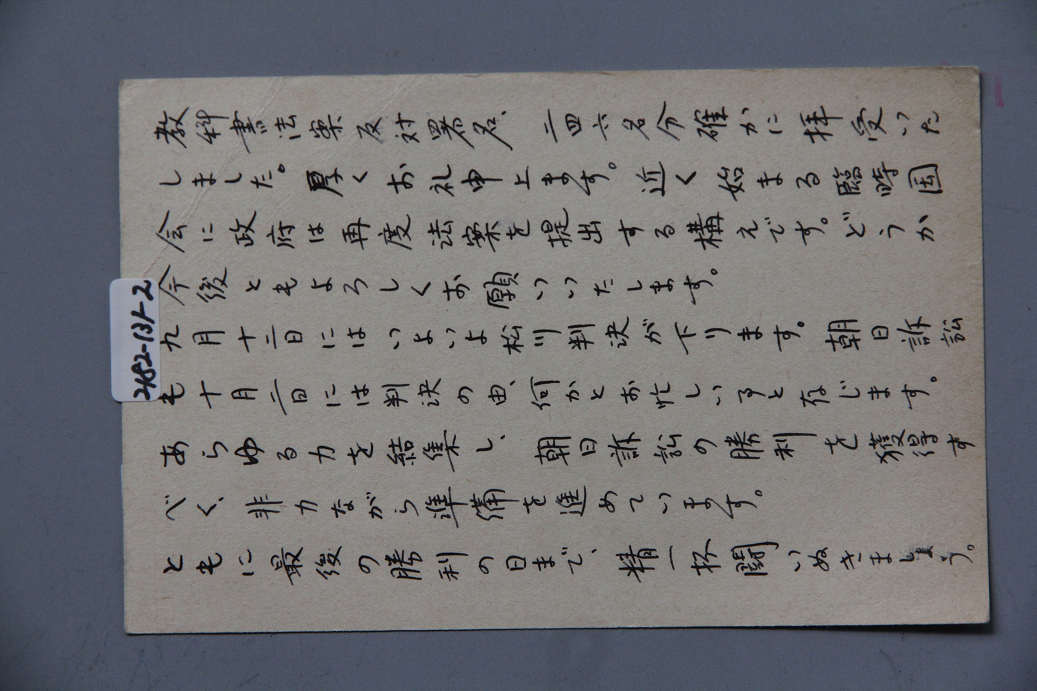 教科書法案反対署名、二四六名分確かに拝受いた
しました。厚くお礼申上ます。近く始まる臨時国
会に政府は再度法案を提出する構えです。どうか
今後ともよろしくお願いいたします。
九月十二日にはいよいよ松川判決が下ります。朝日訴訟
も十月二日には判決の由、何かとお忙しい事と存じます。
あらゆる力を結集し、朝日訴訟の勝利を獲得す
べく、非力ながら準備を進めています。
ともに最後の勝利の日まで、精一杯闘いぬきましょう。
2482-131-2